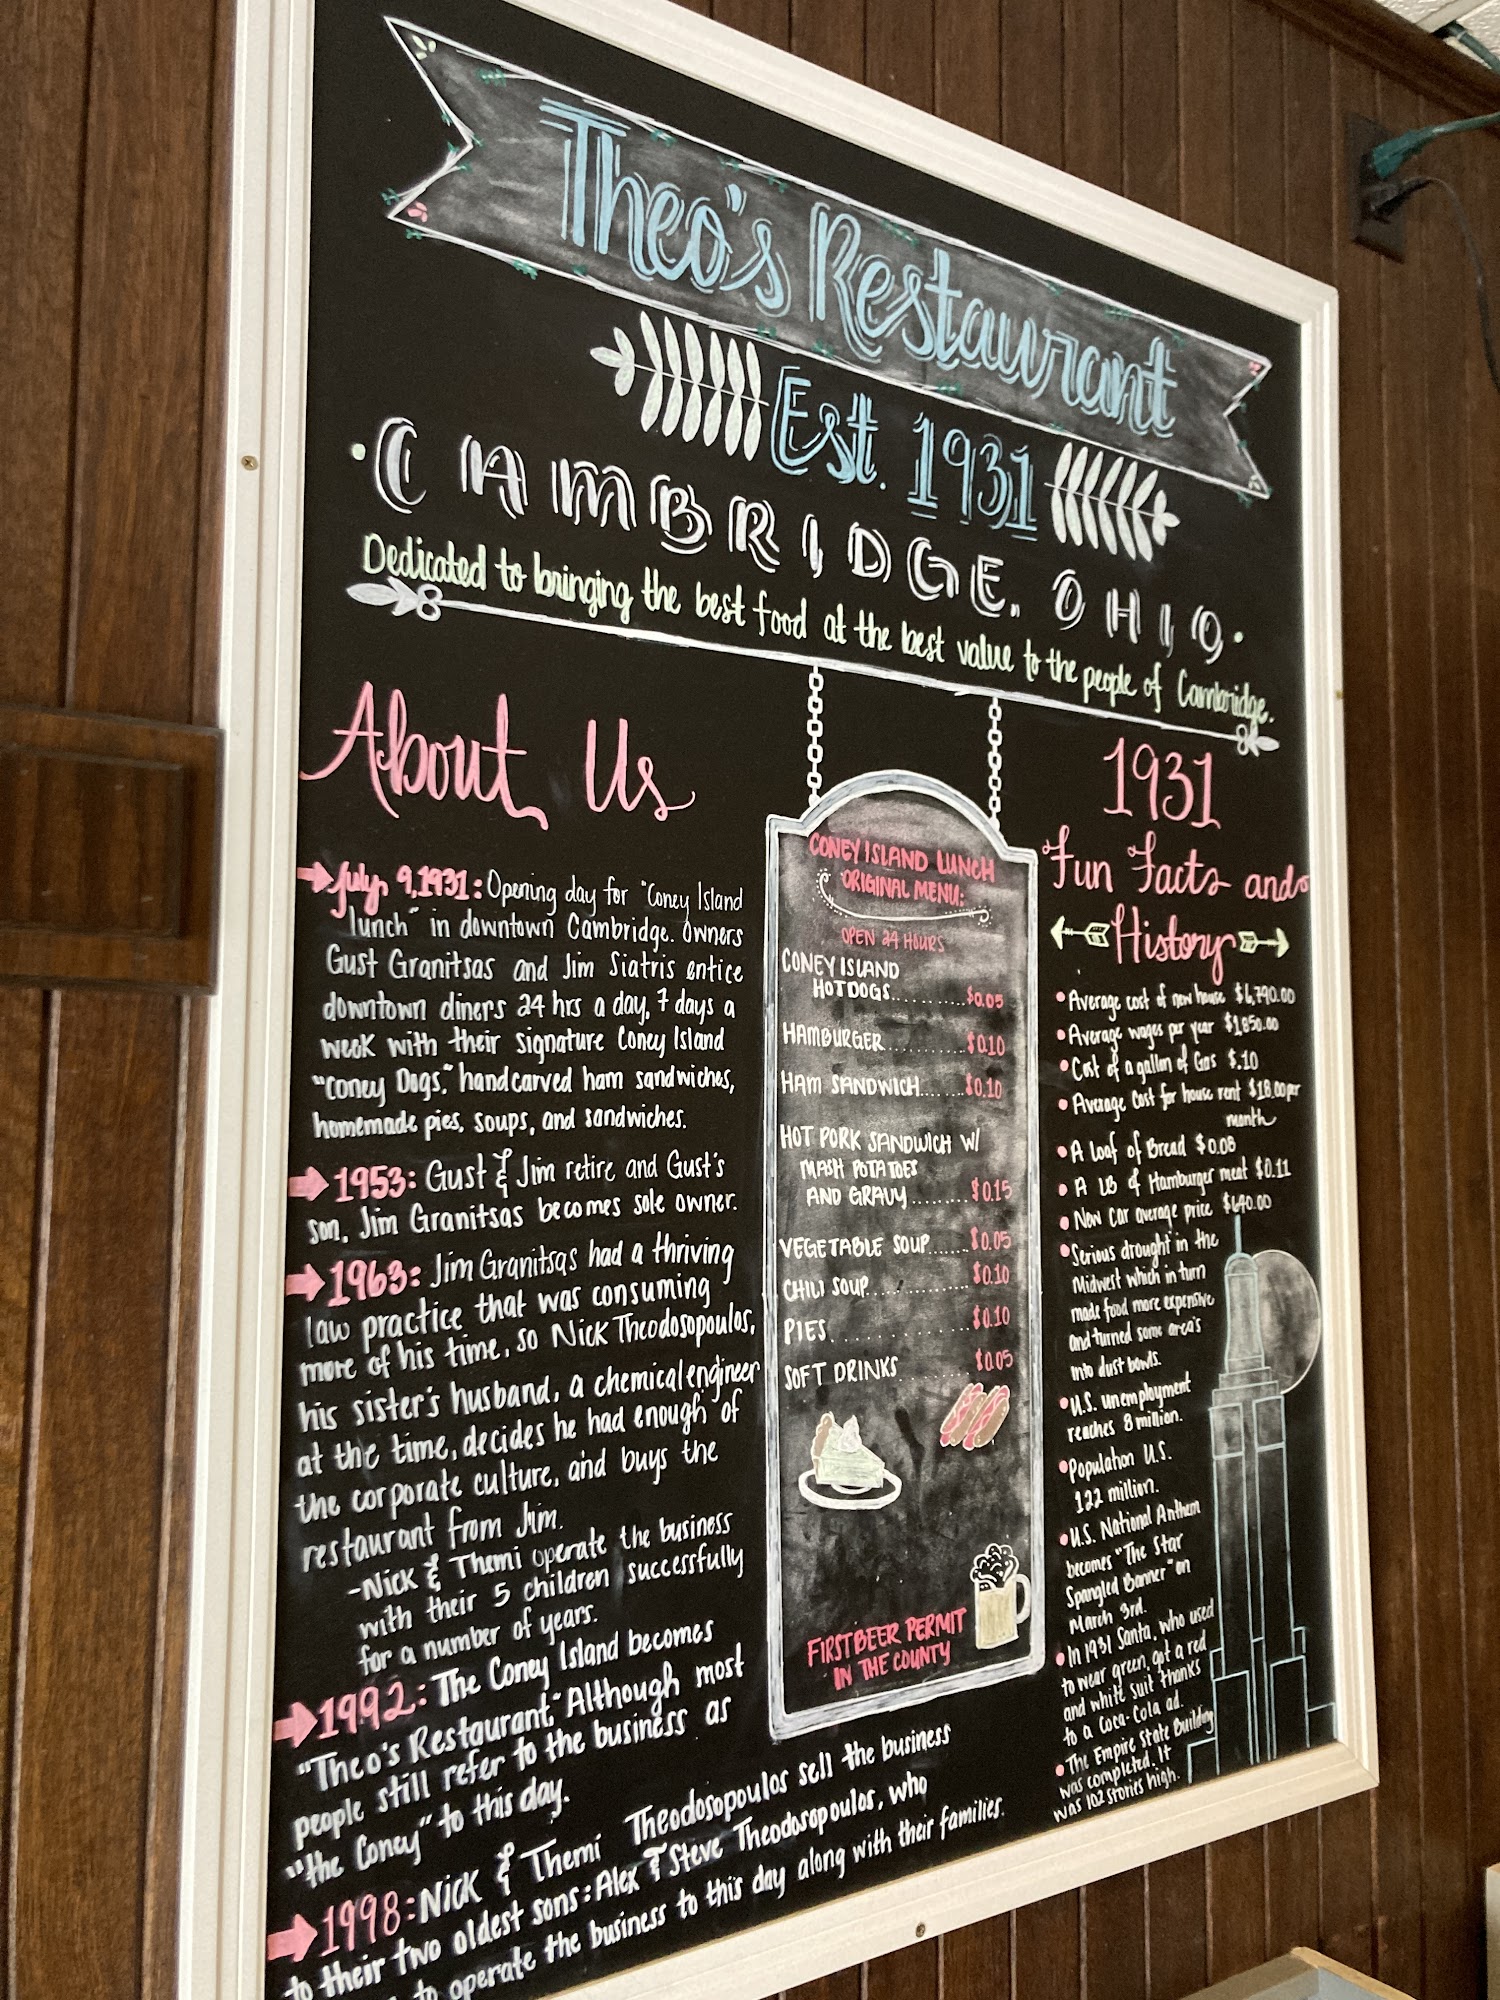 Theo's Restaurant
Est. 1931
CAMBRIDGE, OHIO
Dedicated to bringing the best food at the best value to the people of Cambridge.
About Us
July 9, 1931: Opening day for "Coney Island
lunch" in downtown Cambridge. Owners
Gust Granitsas and Jim Siatris entice
downtown diners 24 hrs a day, 7 days a
week with their signature Coney Island
"Coney Dogs." handcarved ham sandwiches,
homemade pies, soups, and sandwiches.
1953: Gust & Jim retire and Gust's
son, Jim Granitsas becomes sole owner.
1963: Jim Granitsas had a thriving
law practice that was consuming
more of his time, so Nick Theodosopoulos,
his sister's husband, a chemical engineer
at the time, decides he had enough of
the corporate culture, and buys the
restaurant from Jim.
-Nick & Themi operate the business
with their 5 children successfully
for a number of years.
1992: The Coney Island becomes
"Theo's Restaurant." Although most
people still refer to the business as
"the Coney" to this day.
1998: Nick & Themi Theodosopoulos sell the business
to their two oldest sons: Alex & Steve Theodosopoulos, who
to operate the business to this day along with their families.
CONEY ISLAND LUNCH
ORIGINAL MENU:
OPEN 24 HOURS
CONEY ISLAND
HOTDOGS..........$0.05
HAMBURGER..........$0.10
HAM SANDWICH......$0.10
HOT PORK SANDWICH W/
MASH POTATOES
AND GRAVY........$0.15
VEGETABLE SOUP......$0.05
CHILI SOUP..........$0.10
PIES..............$0.10
SOFT DRINKS........$0.05
FIRST BEER PERMIT
IN THE COUNTY
1931
Fun Facts and
History
• Average cost of new house $6,790.00
• Average wages per year $1,850.00
• Cost of a gallon of Gas $.10
• Average Cost for house rent $18.00 per
month
• A Loaf of Bread $0.08
• A LB of Hamburger meat $0.11
• New Car average price $640.00
• Serious drought in the
Midwest which in turn
made food more expensive
and turned some area's
into dust bowls.
• U.S. unemployment
reaches 8 million.
• Population U.S.
122 million.
• U.S. National Anthem
becomes "The Star
Spangled Banner" on
March 3rd.
• In 1931 Santa, who used
to wear green, got a red
and white suit thanks
to a Coca-Cola ad.
• The Empire State Building
was completed. It
was 102 stories high.